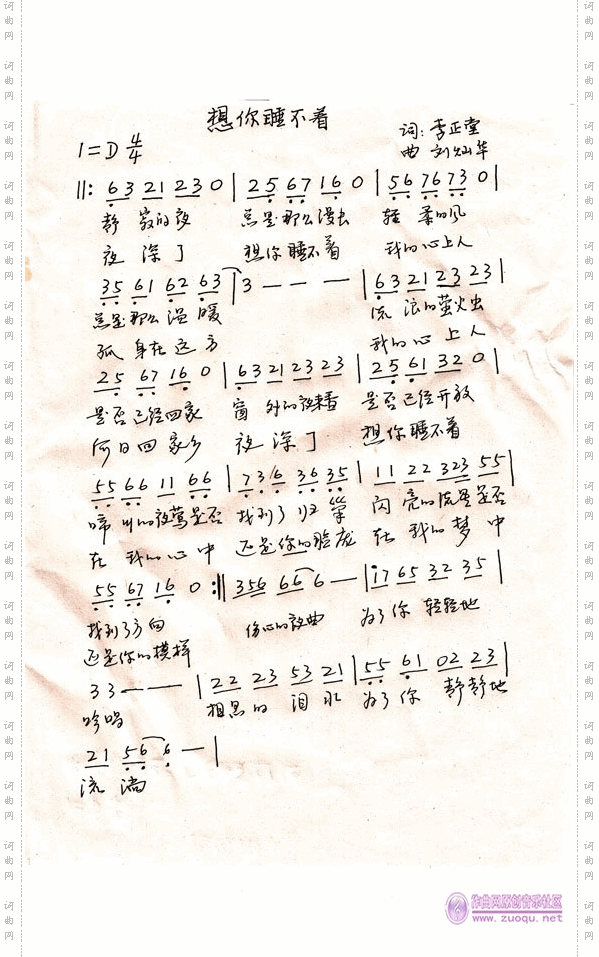 想你睡不着
1=D 4/4
词:李正堂
曲 刘灿华
||: 63 21 230 | 25 67 16 0 | 56 76 73 0 |
静 寂的夜 总是那么漫长 轻 柔的风
夜 深了 想你睡不着 我的心上人
35 61 62 63 | 3 — — — | 63 21 23 23 |
总是那么温暖 流 浪的萤火虫
孤身在远方 我的心上人
25 67 16 0 | 63 21 23 23 | 25 61 32 0 |
是否已经回家 窗 外的夜来香 是否已经开放
何日回家乡 夜深了 想你睡不着
55 66 11 66 | 736 36 35 | 11 22 323 55 |
啼叫的夜莺是否 找到了归巢 闪亮的流星是否
在我的心中 还是你的脸庞 在我的梦中
55 67 16 0 :|| 356 66 6 — | 17 65 32 35 |
找到了方向 伤心的夜曲 为了你 轻轻地
还是你的模样
33 — — — | 22 23 53 21 | 55 61 02 23 |
吟唱 相思的 泪水 为了你 静静地
21 56 6 — |
流淌
作曲网原创音乐社区
www.zuoqu.net
词曲网